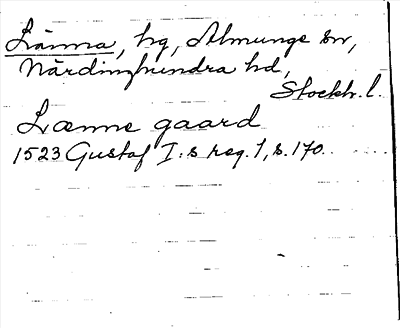 Länna, hg, Almunge sn,
Närdinghundra hd,
Stockh. l.
Lænne gaard
1523 Gustaf I:s reg. 1, s. 170.